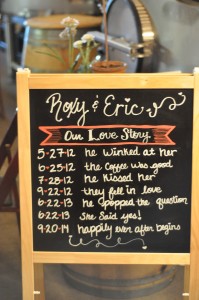 Roxy & Eric
Our Love Story
5-27-12 he winked at her
6-25-12 the coffee was good
7-28-12 he kissed her
9-22-12 they fell in love
6-22-13 he popped the question
6-22-13 She Said yes!
9-20-14 happily ever after begins